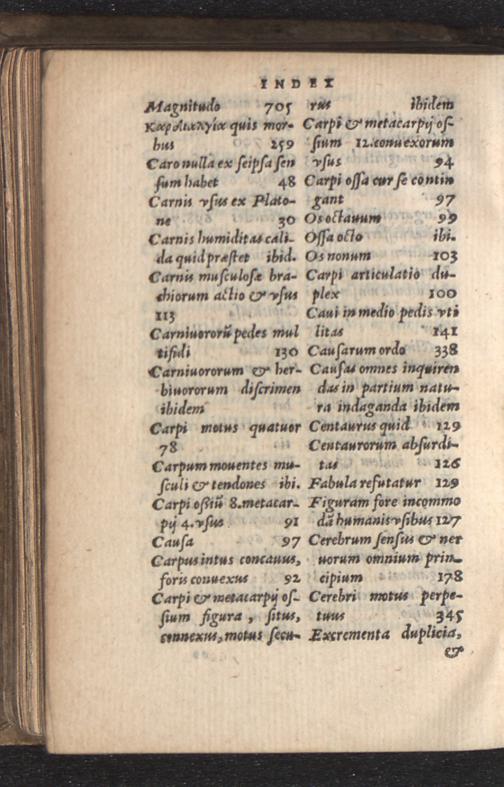 INDEX
Magnitudo 705
καρδιαλγία quis mor-
bus 259
Caro nulla ex seipsa sen
sum habet 48
Carnis vsus ex Plato-
ne 30
Carnis humiditas cali-
da quid præstet ibid.
Carnis musculosæ bra-
chiorum actio & vsus
113
Carniuororū pedes mul
tifidi 130
Carniuororum & her-
biuororum discrimen
ibidem
Carpi motus quatuor
78
Carpum mouentes mu-
sculi & tendones ibi.
Carpi ossiū 8. metacar-
pij 4. vsus 91
Causa 97
Carpus intus concauus,
foris conuexus 92
Carpi & metacarpij os-
sium figura, situs,
connexus, motus secu-
rus ibidem
Carpi & metacarpij os-
sium 12. conuexorum
vsus 94
Carpi ossa cur se contin
gant 97
Os octauum 99
Ossa octo ibi.
Os nonum 103
Carpi articulatio du-
plex 100
Caui in medio pedis vti
litas 141
Causarum ordo 338
Causas omnes inquiren
das in partium natu-
ra indaganda ibidem
Centaurus quid 129
Centaurorum absurdi-
tas 126
Fabula refutatur 129
Figuram fore incommo
dā humanis vsibus 127
Cerebrum sensus & ner
uorum omnium prin-
cipium 178
Cerebri motus perpe-
tuus 345
Excrementa duplicia,
&